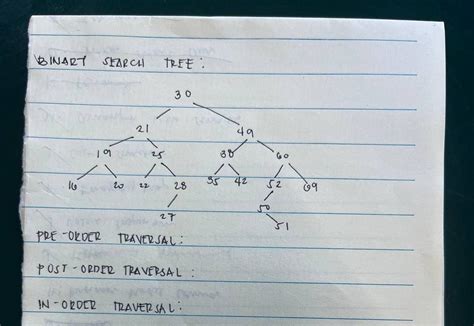 BINARY SEARCH TREE:
30
21 49
19 25 38 60
16 20 22 28 35 42 52 69
27 50
51
PRE-ORDER TRAVERSAL:
POST-ORDER TRAVERSAL:
IN-ORDER TRAVERSAL: